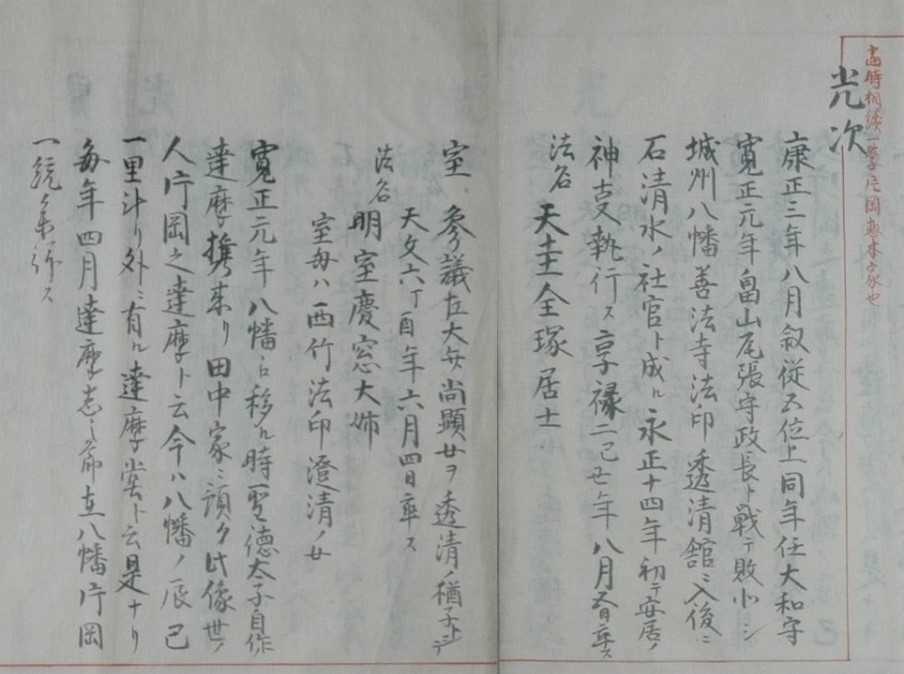 当時相続一学片岡惣本家也
光次
康正三年八月叙従五位上同年任大和守
寛正元年畠山尾張守政長ト戦テ敗北シ
城州八幡善法寺法印透清舘ニ入後ニ
石清水ノ社官ト成ル永正十四年初テ安居ノ
神㕝執行ス享禄二己丑年八月 卒ス
法名 天圭全琢居士
室 参議左大弁尚顕女ヲ透清ノ猶子トシテ
天文六丁酉年六月四日卒ス
法名 明室慶窓大姉
室母ハ西竹法印澄清ノ女
寛正元年八幡ニ移ル時聖徳太子自作
達摩携来リ田中家ニ預ク此像世ノ
人片岡之達摩ト云今ハ八幡ノ辰巳
一里斗リ外ニ有ル達摩堂ト云是ナリ
毎年四月達摩志之節在八幡片岡
一統参詣ス